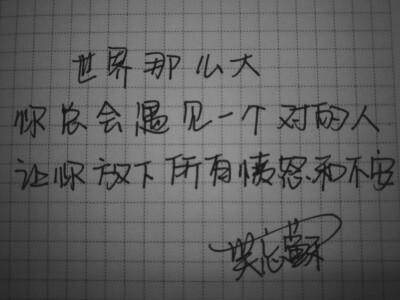 世界那么大
你总会遇见一个对的人
让你放下所有愤怒和不安
笑忘蘇